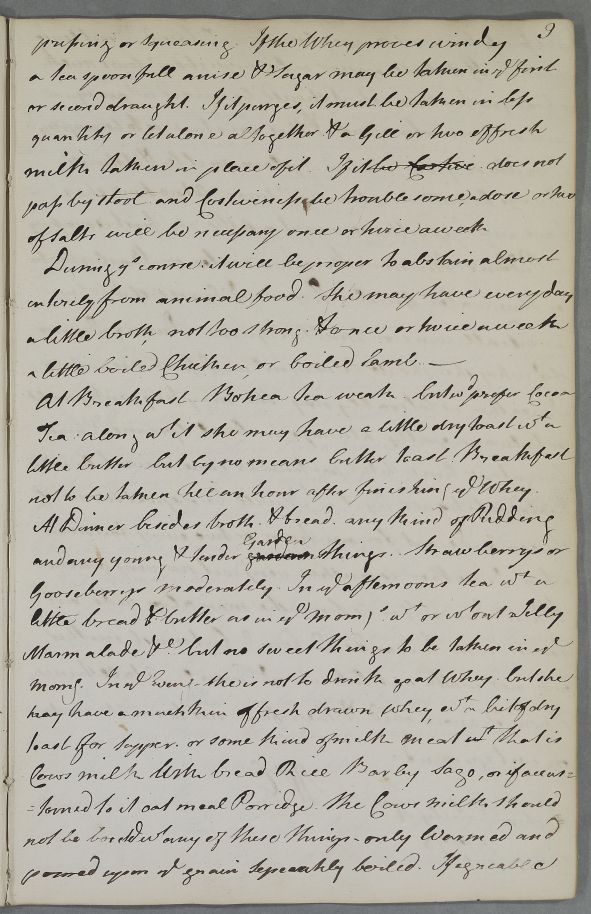 9
pressing or squeasing. If the Whey proves windy
a tea spoonfull anise & Sugar may be taken in yͤ first
or second draught. If it purges, it must be taken in less
quantity or let alone altogether & a Gill or two of fresh
milk taken in place of it. If it be Costive does not
pass by stool and Costiveness be troublesome, a dose or two
of salts will be necessary once or twice a week
During yͤ course it will be proper to abstain almost
entirely from animal food. She may have every day
a little broth, not too strong. & once or twice a week
a little boiled Chicken, or boiled Lamb. —
At Breakfast Bohea tea weak but wᵈ prefer Cocoa
Tea: along wᵗ it she may have a little dry toast wᵗ a
little butter but by no means butter toast. Breakfast
not to be taken till an hour after finishing yͤ Whey.
At Dinner besides broth & bread any kind of Pudding
Garden
and any young & tender things. Strawberrys or
Gooseberrys moderately. In yͤ afternoons tea wᵗ a
little bread & butter as in yͤ morng. wᵗ or wᵗout Jelly
Marmalade &c but no sweet things to be taken in yͤ
morng. In yͤ Eveng she is not to drink goat Whey but she
may have a mutchkin of fresh drawn Whey, wᵗ a bit of dry
toast for supper. or some kind of milk meat that is
Cows milk with bread Rice Barley Sago, or if accus=
=tomed to it oat meal Porridge. The Cows milk should
not be boild wᵗ any of these things - only warmed and
poured upon yͤ grain seperately boiled. If agreable